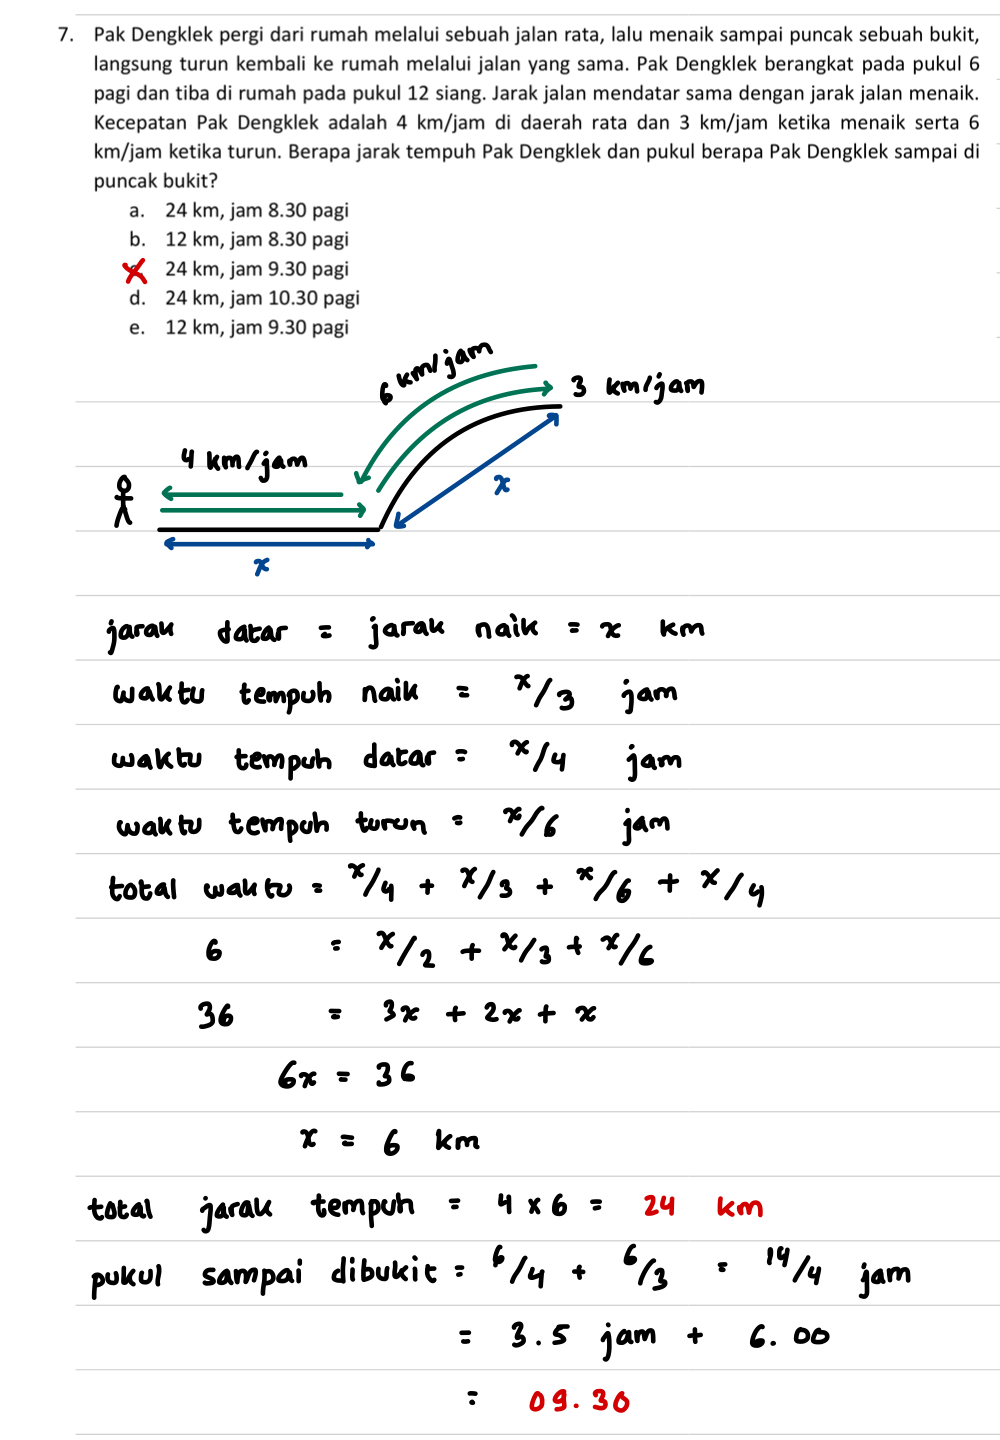 7. Pak Dengklek pergi dari rumah melalui sebuah jalan rata, lalu menaik sampai puncak sebuah bukit,
langsung turun kembali ke rumah melalui jalan yang sama. Pak Dengklek berangkat pada pukul 6
pagi dan tiba di rumah pada pukul 12 siang. Jarak jalan mendatar sama dengan jarak jalan menaik.
Kecepatan Pak Dengklek adalah 4 km/jam di daerah rata dan 3 km/jam ketika menaik serta 6
km/jam ketika turun. Berapa jarak tempuh Pak Dengklek dan pukul berapa Pak Dengklek sampai di
puncak bukit?
a. 24 km, jam 8.30 pagi
b. 12 km, jam 8.30 pagi
24 km, jam 9.30 pagi
d. 24 km, jam 10.30 pagi
e. 12 km, jam 9.30 pagi
6 km/jam
3 km/jam
4 km/jam
x
x
jarak datar = jarak naik = x km
waktu tempuh naik = x/3 jam
waktu tempuh datar = x/4 jam
waktu tempuh turun = x/6 jam
total waktu = x/4 + x/3 + x/6 + x/4
6 = x/2 + x/3 + x/6
36 = 3x + 2x + x
6x = 36
x = 6 km
total jarak tempuh = 4 x 6 = 24 km
pukul sampai dibukit = 6/4 + 6/3 = 14/4 jam
= 3.5 jam + 6.00
= 09.30